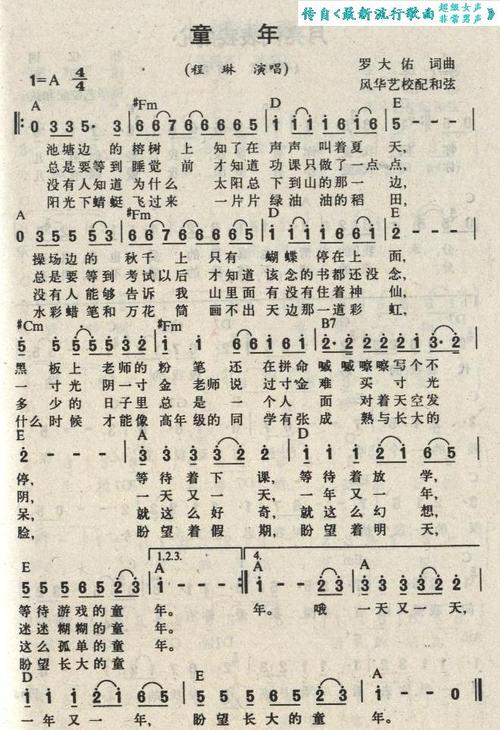 传自《最新流行歌曲 超级女声 非常男声》
童 年
1=A 4/4
(程 琳 演唱)
罗 大 佑 词曲
风华艺校配和弦
A #Fm D E
0 3 3 5· 3 6 6 7 6 6 6 6 5 i i i i 6 i 6 5 — — 0
池塘边的 榕树 上 知了在 声声 叫着夏 天,
总是要等到 睡觉 前 才知道 功课只做了一点点,
没有人知道 为什么 太阳总 下到山的那一 边,
阳光下蜻蜓 飞过来 一片片 绿油 油的稻 田,
A #Fm D E
操场边的 秋千 上 只有 蝴蝶 停在上 面,
总是要等到 考试以后 才知道 该念的书都还没念,
没有人能够 告诉 我 山里面 有没有住着神 仙,
水彩蜡笔和 万花 筒 画不出 天边那一道彩 虹,
#Cm #Fm B7
黑 板上 老师的 粉 笔 还 在拼命 喊喊嚓嚓写个不
一 寸光 阴一寸 金 老师 说 过寸金 难 买 寸 光
多 少的 日子里 总 是 一 个人 面 对着天空发
什么时候 才能像 高年级的同 学有张成 熟与长大的
E A D
停, 等待着 下 课, 等待着 放 学,
阴, 一天又一 天, 一年 又 一 年,
呆, 就这么好 奇, 就这么幻 想,
脸, 盼望着假 期, 盼望着明 天,
1.2.3. 4.
E A A
等待游戏的童 年。 年。 哦 一天又一 天,
迷迷糊糊的童 年。
这么孤单的童 年。
盼望长大的童
D E A
一年 又 一 年, 盼望长大的童 年。